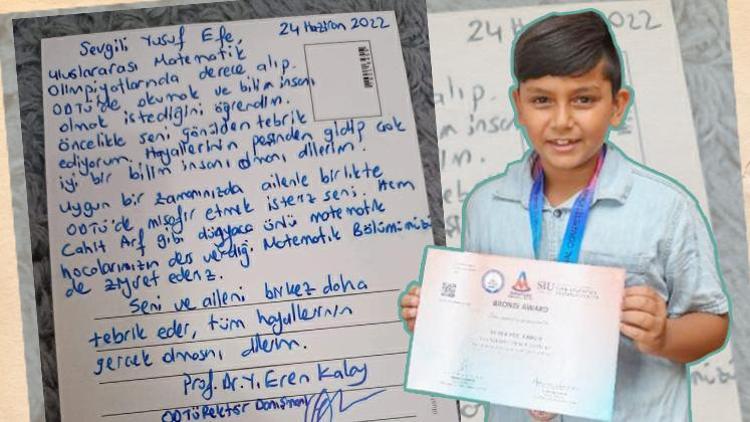 Sevgili Yusuf Efe,
24 Haziran 2022
Uluslararası Matematik
Olimpiyatlarında derece alıp.
ODTÜ'de okumak ve bilim insanı
olmak istediğini öğrendim.
öncelikle seni gönülden tebrik
ediyorum. Hayallerinin peşinden gidip çok
iyi bir bilim insanı olmanı dilerim.
Uygun bir zamanınızda ailenle birlikte
ODTÜ'de misafir etmek isteriz seni. Hem
Cahit Arf gibi dünyaca ünlü matematik
hocalarımızın ders verdiği Matematik Bölümümüzü
de ziyaret ederiz.
Seni ve aileni birkez daha
tebrik eder, tüm hayallerinin
gerçek olmasını dilerim.
Prof. Dr. Y. Eren Kalay
ODTÜ Rektör Danışmanı
24 Haziran 2022
alıp.
m insan
im.
SIU
BRONZE AWARD